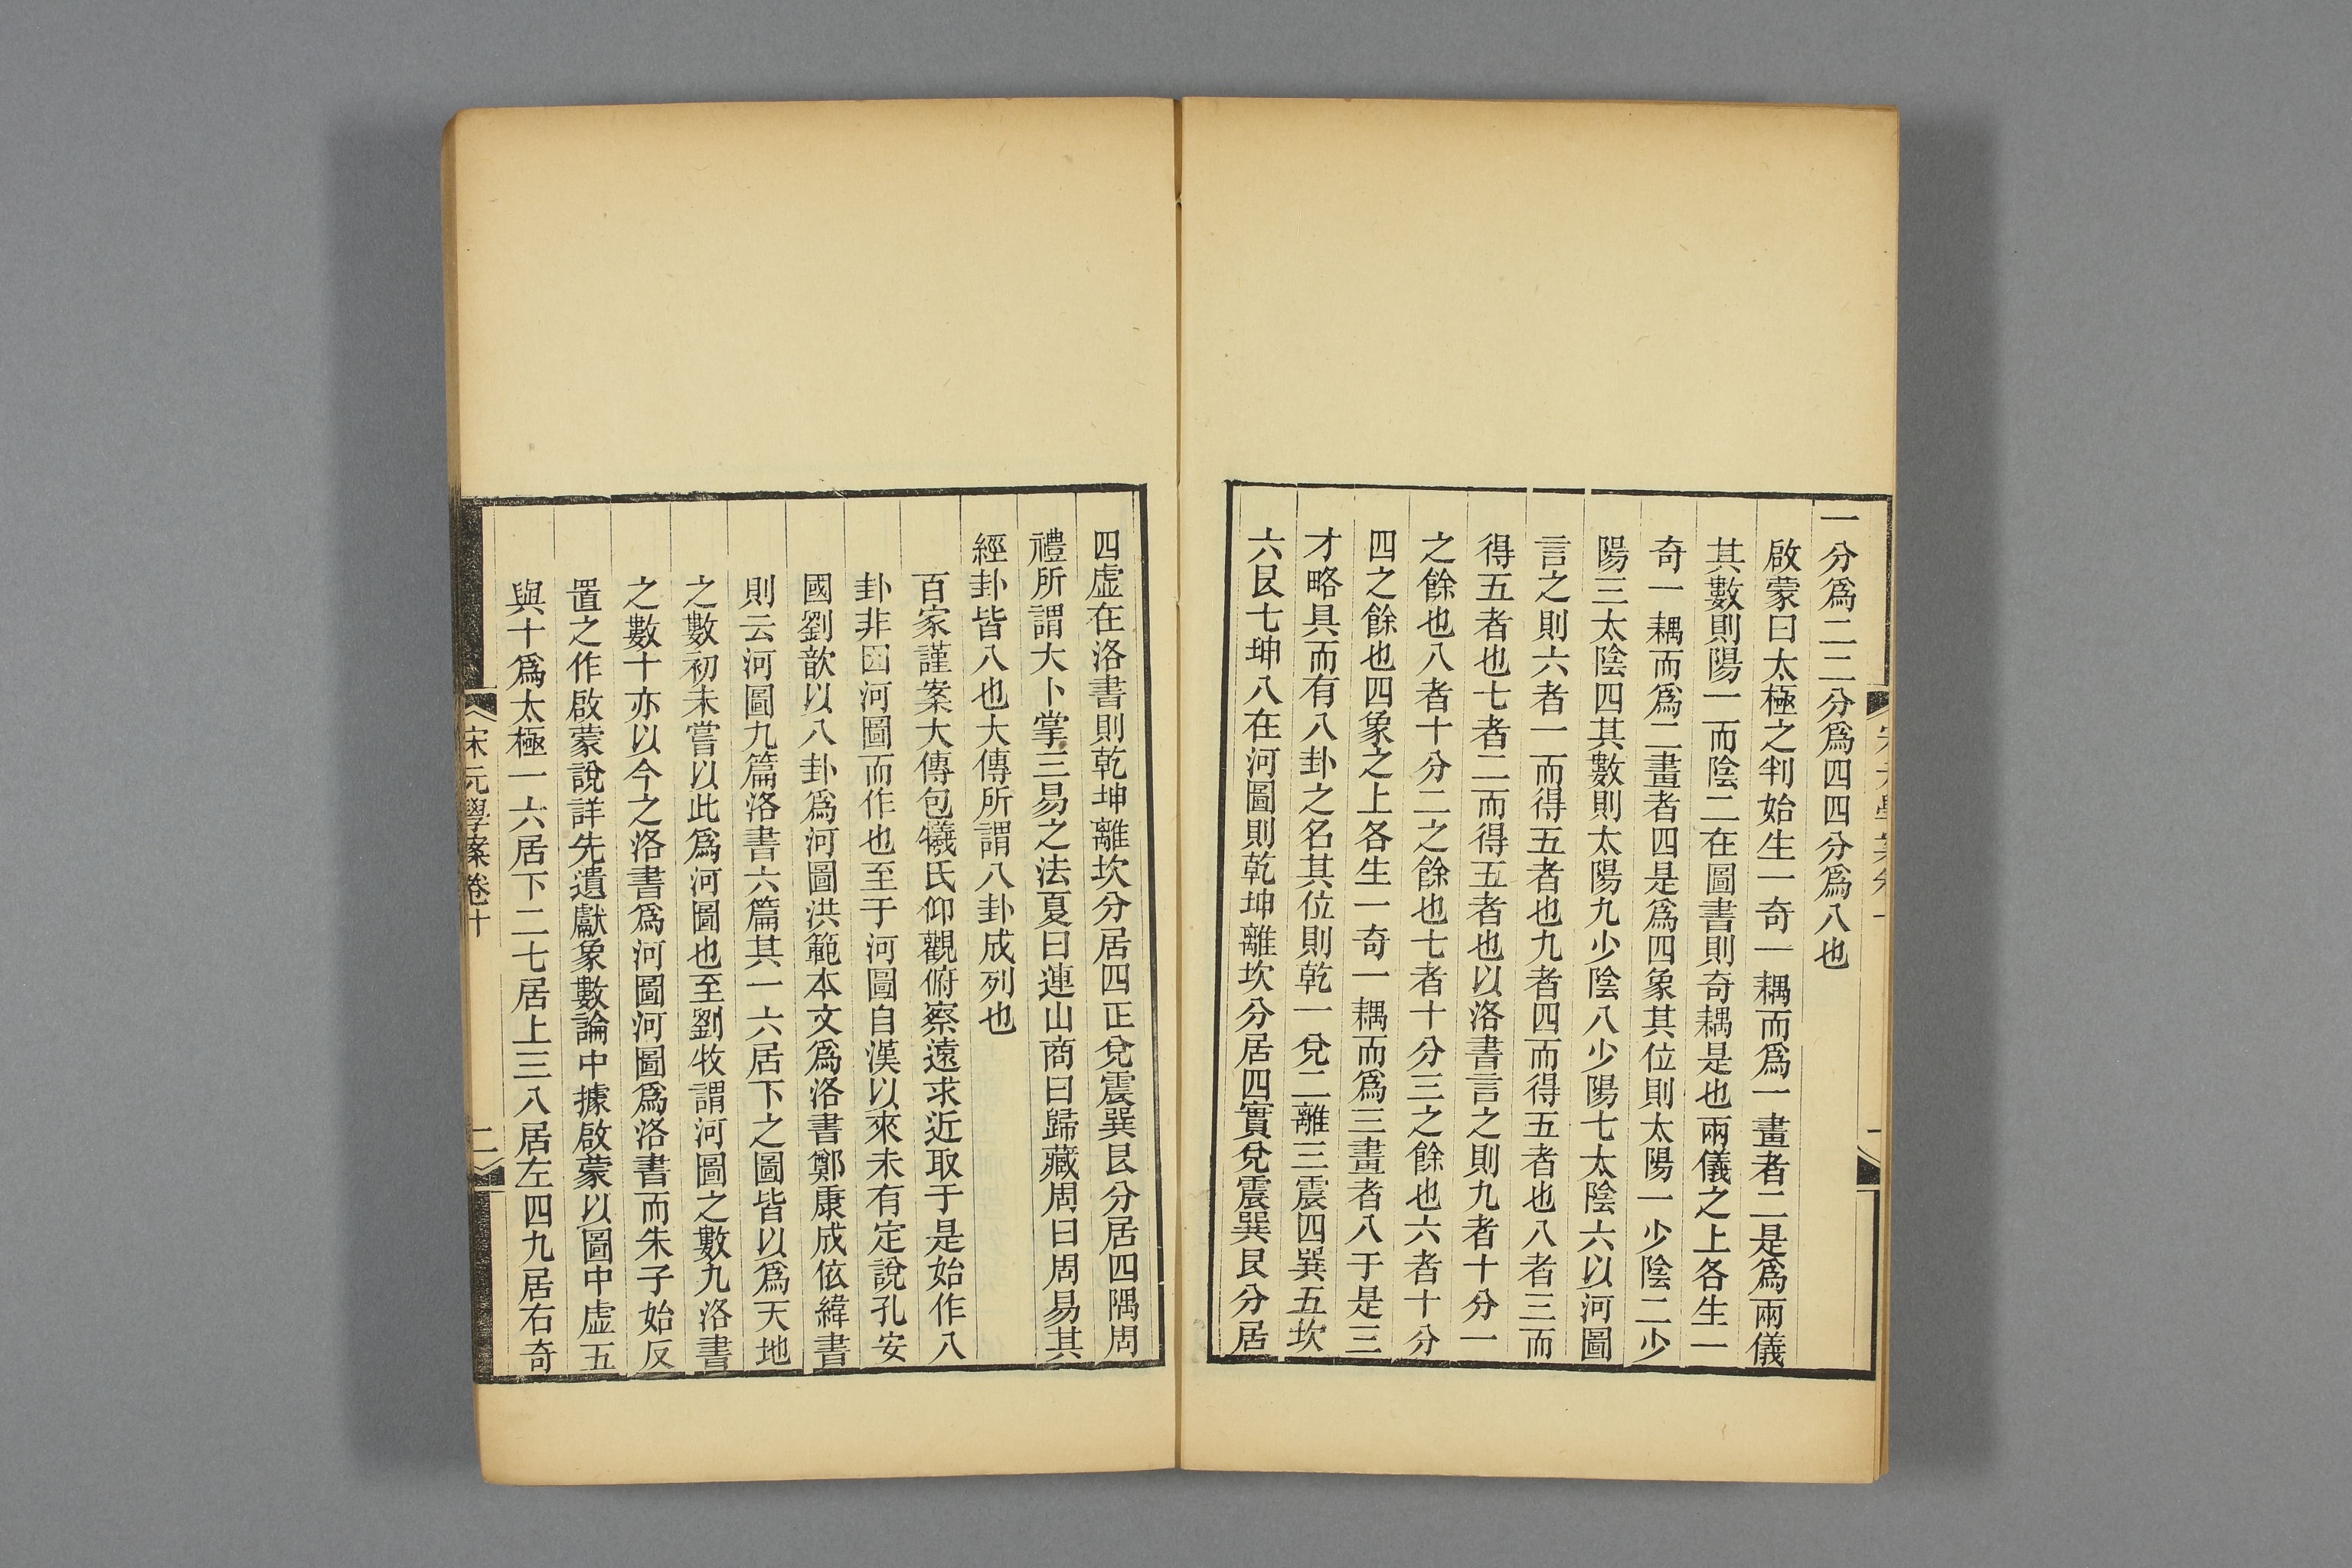 一分爲二二分爲四四分爲八也
啟蒙曰太極之判始生一奇一耦而爲一畫者二是爲兩儀
其數則陽一而陰二在圖書則奇耦是也兩儀之上各生一
奇一耦而爲二畫者四是爲四象其位則太陽一少陰二少
陽三太陰四其數則太陽九少陰八少陽七太陰六以河圖
言之則六者一而得五者也九者四而得五者也八者三而
得五者也七者二而得五者也以洛書言之則九者十分一
之餘也八者十分二之餘也七者十分三之餘也六者十分
四之餘也四象之上各生一奇一耦而爲三畫者八于是三
才略具而有八卦之名其位則乾一兌二離三震四巽五坎
六艮七坤八在河圖則乾坤離坎分居四實兌震巽艮分居
四虛在洛書則乾坤離坎分居四正兌震巽艮分居四隅周
禮所謂大卜掌三易之法夏曰連山商曰歸藏周曰周易其
經卦皆八也大傳所謂八卦成列也
百家謹案大傳包犧氏仰觀俯察遠求近取于是始作八
卦非因河圖而作也至于河圖自漢以來未有定說孔安
國劉歆以八卦爲河圖洪範本文爲洛書鄭康成依緯書
則云河圖九篇洛書六篇其一六居下之圖皆以爲天地
之數初未嘗以此爲河圖也至劉牧謂河圖之數九洛書
之數十亦以今之洛書爲河圖河圖爲洛書而朱子始反
置之作啟蒙說詳先遺獻象數論中據啟蒙以圖中虛五
與十爲太極一六居下二七居上三八居左四九居右奇
宋元學案卷十
二